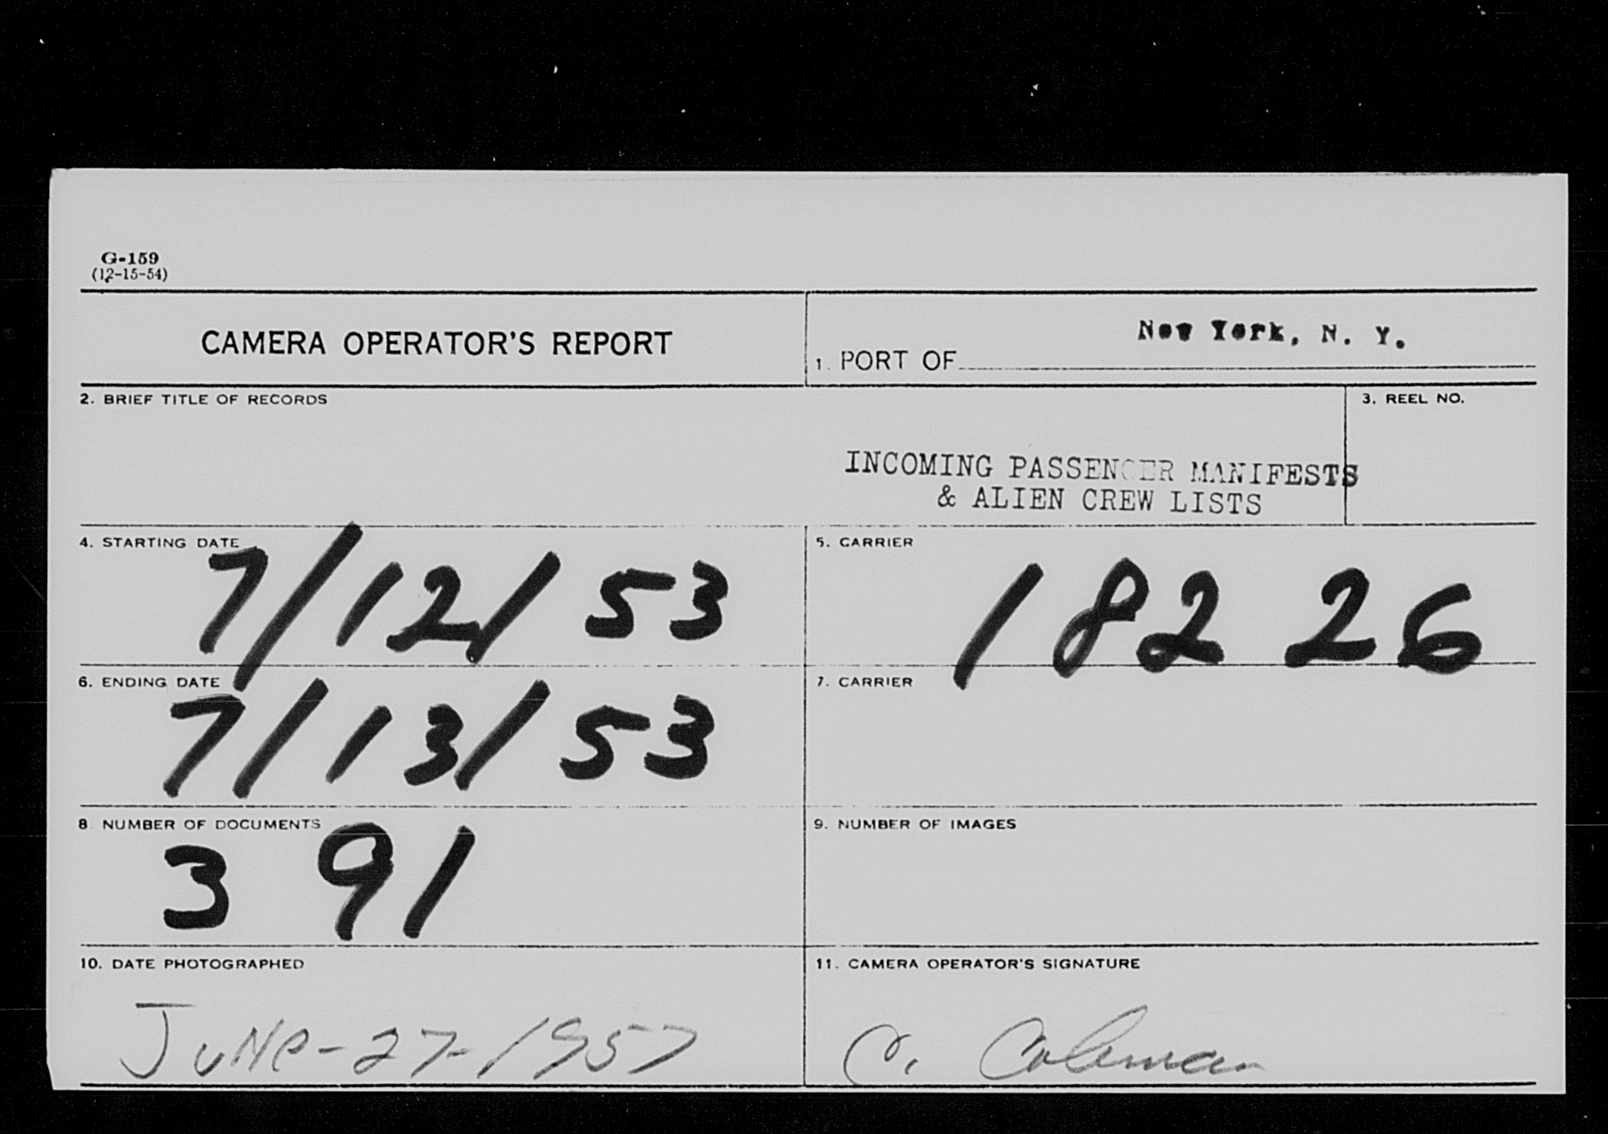 G-159
(12-15-54)
CAMERA OPERATOR'S REPORT
1. PORT OF New York, N. Y.
2. BRIEF TITLE OF RECORDS
INCOMING PASSENGER MANIFESTS
& ALIEN CREW LISTS
3. REEL NO.
4. STARTING DATE
7/12/53
5. CARRIER
182 26
6. ENDING DATE
7/13/53
7. CARRIER
8 NUMBER OF DOCUMENTS
3 91
9. NUMBER OF IMAGES
10. DATE PHOTOGRAPHED
June-27-1957
11. CAMERA OPERATOR'S SIGNATURE
C. Coleman